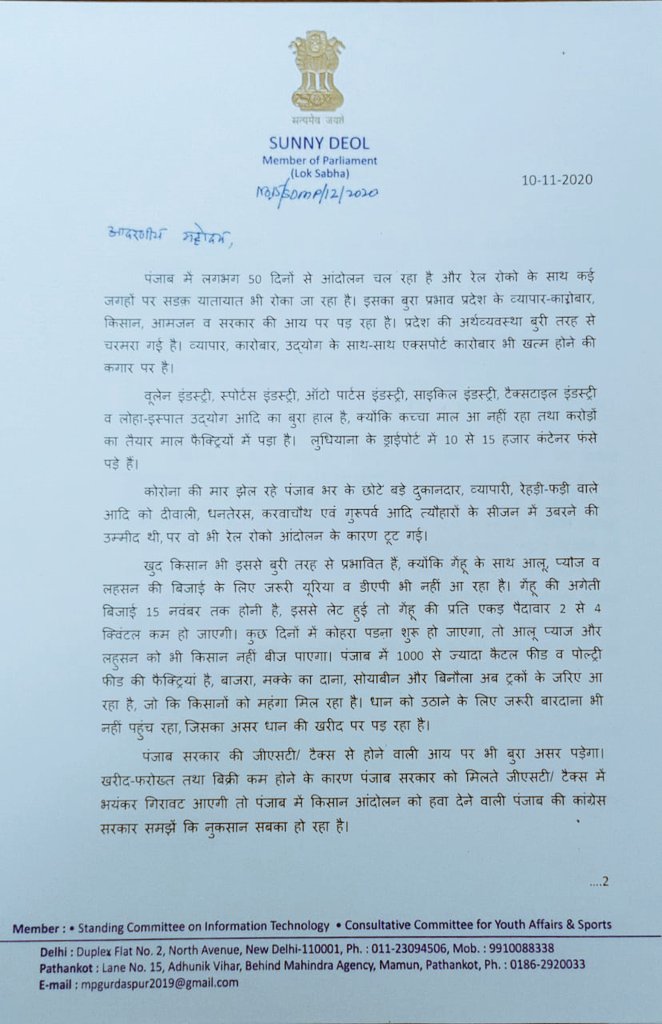 सत्यमेव जयते
SUNNY DEOL
Member of Parliament
(Lok Sabha)
10-11-2020
आदरणीय महोदय,
पंजाब में लगभग 50 दिनों से आंदोलन चल रहा है और रेल रोको के साथ कई
जगहों पर सडक़ यातायात भी रोका जा रहा है। इसका बुरा प्रभाव प्रदेश के व्यापार-कारोबार,
किसान, आमजन व सरकार की आय पर पड़ रहा है। प्रदेश की अर्थव्यवस्था बुरी तरह से
चरमरा गई है। व्यापार, कारोबार, उद्योग के साथ-साथ एक्सपोर्ट कारोबार भी खत्म होने की
कगार पर है।
वूलेन इंडस्ट्री, स्पोर्टस इंडस्ट्री, ऑटो पार्टस इंडस्ट्री, साइकिल इंडस्ट्री, टैक्सटाइल इंडस्ट्री
व लोहा-इस्पात उद्योग आदि का बुरा हाल है, क्योंकि कच्चा माल आ नहीं रहा तथा करोड़ों
का तैयार माल फैक्ट्रियों में पड़ा है। लुधियाना के ड्राईपोर्ट में 10 से 15 हजार कंटेनर फंसे
पड़े हैं।
कोरोना की मार झेल रहे पंजाब भर के छोटे बड़े दुकानदार, व्यापारी, रेहड़ी-फड़ी वाले
आदि को दीवाली, धनतेरस, करवाचौथ एवं गुरूपर्व आदि त्यौहारों के सीजन में उबरने की
उम्मीद थी, पर वो भी रेल रोको आंदोलन के कारण टूट गई।
खुद किसान भी इससे बुरी तरह से प्रभावित हैं, क्योंकि गेंहू के साथ आलू, प्यौज व
लहसन की बिजाई के लिए जरूरी यूरिया व डीएपी भी नहीं आ रहा है। गेंहू की अगेती
बिजाई 15 नवंबर तक होनी है, इससे लेट हुई तो गेंहू की प्रति एकड़ पैदावार 2 से 4
क्विंटल कम हो जाएगी। कुछ दिनों में कोहरा पडना शुरू हो जाएगा, तो आलू प्याज और
लहुसन को भी किसान नहीं बीज पाएगा। पंजाब में 1000 से ज्यादा कैटल फीड व पोल्ट्री
फीड की फैक्ट्रियां है, बाजरा, मक्के का दाना, सोयाबीन और बिनौला अब ट्रकों के जरिए आ
रहा है, जो कि किसानों को महंगा मिल रहा है। धान को उठाने के लिए जरूरी बारदाना भी
नहीं पहुंच रहा, जिसका असर धान की खरीद पर पड़ रहा है।
पंजाब सरकार की जीएसटी/ टैक्स से होने वाली आय पर भी बुरा असर पड़ेगा।
खरीद-फरोख्त तथा बिक्री कम होने के कारण पंजाब सरकार को मिलते जीएसटी/ टैक्स में
भयंकर गिरावट आएगी तो पंजाब में किसान आंदोलन को हवा देने वाली पंजाब की कांग्रेस
सरकार समझें कि नुकसान सबका हो रहा है।
....2
Member : • Standing Committee on Information Technology • Consultative Committee for Youth Affairs & Sports
Delhi : Duplex Flat No. 2, North Avenue, New Delhi-110001, Ph. : 011-23094506, Mob. : 9910088338
Pathankot : Lane No. 15, Adhunik Vihar, Behind Mahindra Agency, Mamun, Pathankot, Ph. : 0186-2920033
E-mail : mpgurdaspur2019@gmail.com